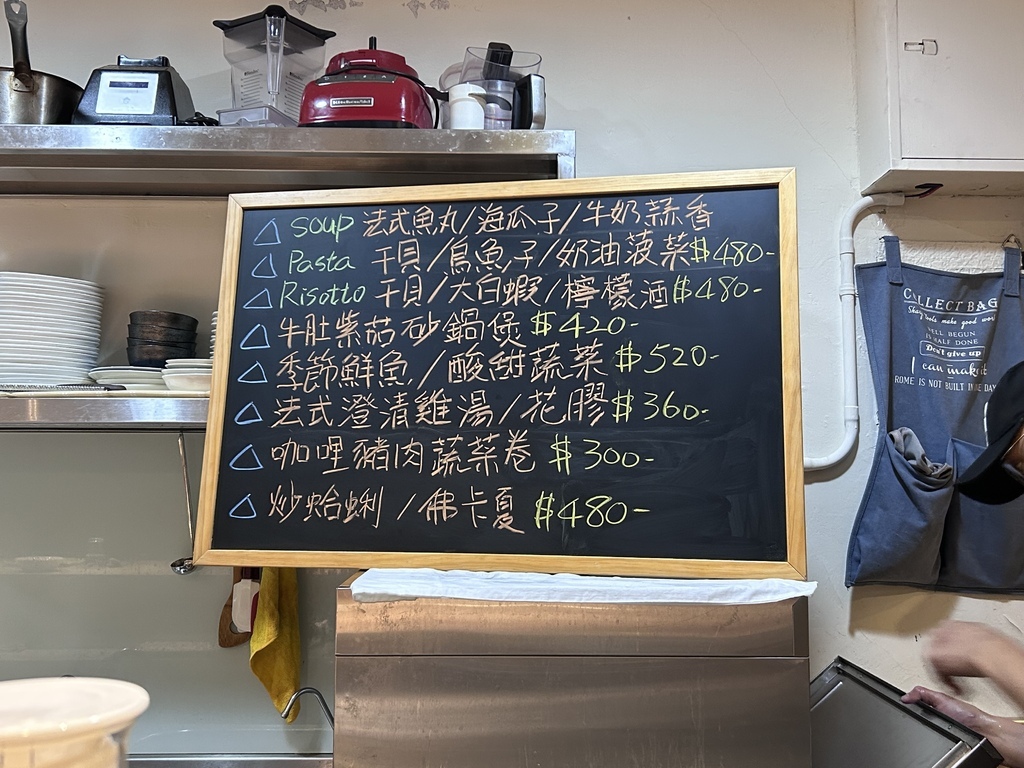 △ soup 法式魚丸/海瓜子/牛奶蒜香
△ Pasta 干貝/烏魚子/奶油菠菜$480-
△ Risotto 干貝/大白蝦/檸檬酒$480-
△ 牛肚紫茄砂鍋煲 $420-
△ 季節鮮魚/酸甜蔬菜 $520-
△ 法式澄清雞湯/花膠$360-
△ 咖哩豬肉蔬菜卷 $300-
△ 炒蛤蜊/佛卡夏 $480-
KitchenAid
COLLECT BAG
WELL BEGUN
IS HALF DONE
Don't give up
I can make it
ROME IS NOT BUILT IN A DAY